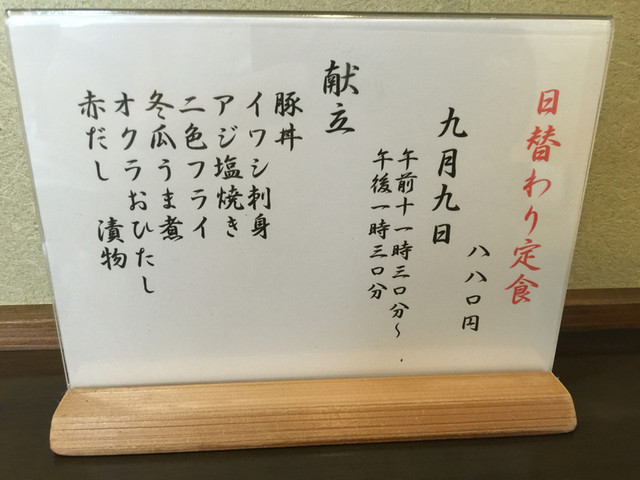 日替わり定食
八八〇円
九月九日
午前十一時三〇分〜
午後一時三〇分
献立
豚丼
イワシ刺身
アジ塩焼き
二色フライ
冬瓜うま煮
オクラおひたし
赤だし 漬物